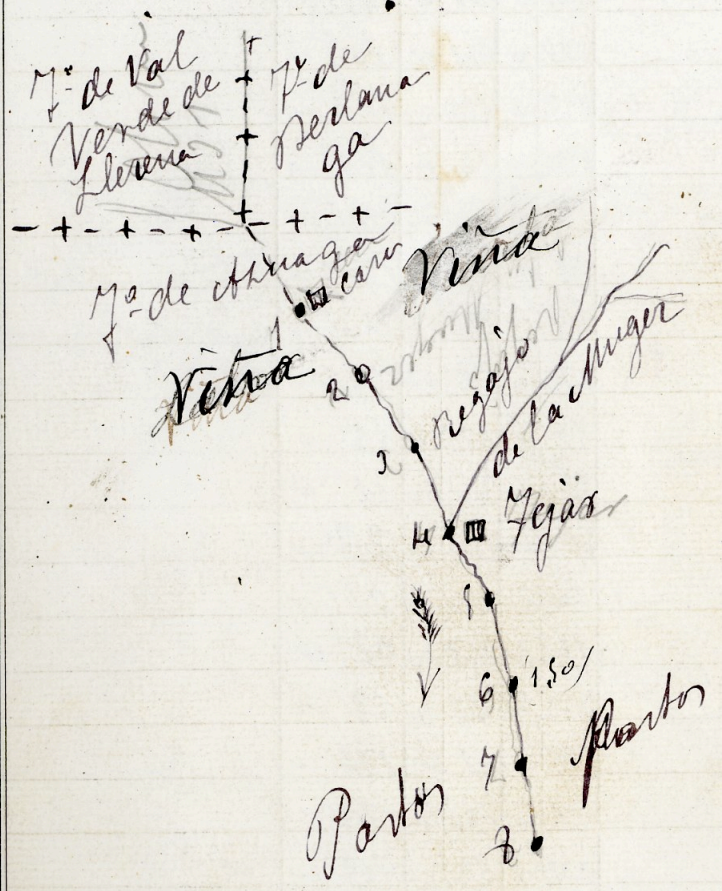 Tº de Val
Verde de
Llerena
Tº de
Berlana
ga
Tº de Ahuaga
casa
Viña
1
Viña
2
Regajo
de la Muger
3
4
Tejar
5
6
1,50
7
Pastos
Pastos
8